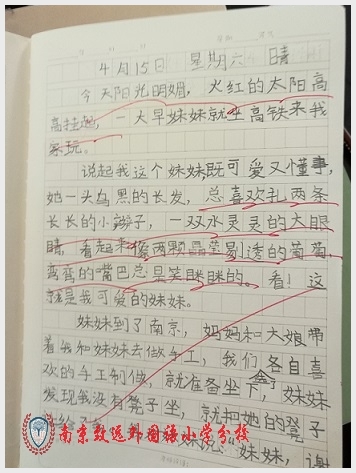 4月15日 星期六 晴
今天阳光明媚，火红的太阳高
高挂起，一大早妹妹就坐高铁来我
家玩。
说起我这个妹妹既可爱又懂事，
她一头乌黑的长发，总喜欢扎两条
长长的小辫子，一双水灵灵的大眼
睛，看起来像两颗晶莹剔透的葡萄，
弯弯的嘴巴总是笑眯眯的。看！这
就是我可爱的妹妹。
妹妹到了南京，妈妈和大娘带
着我和妹妹去做手工，我们各自喜
欢的手工制做，就准备坐下，妹妹
发现我没有凳子坐，就把她的凳子
妹妹，谢
南京致远外国语小学分校